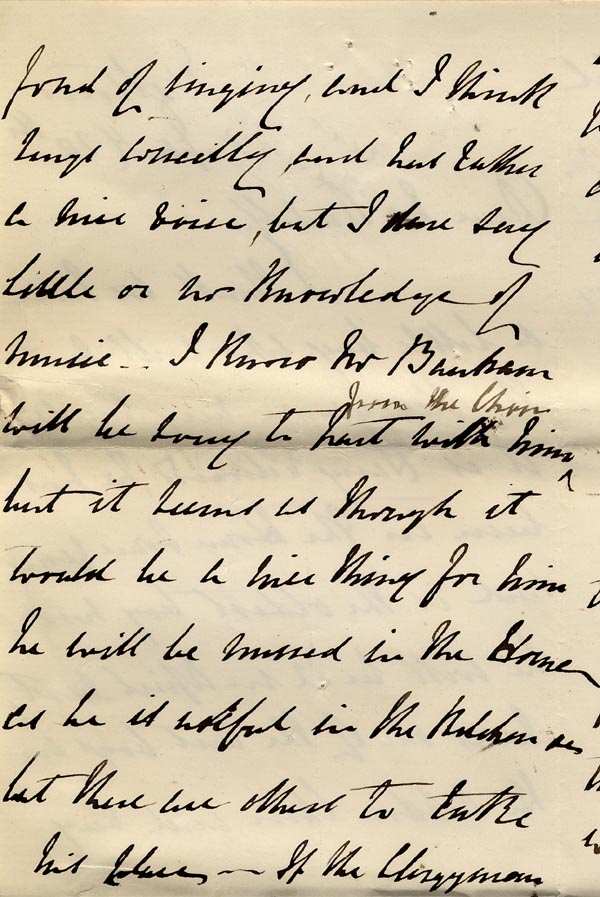 fond of singing, and I think
sings correctly, and has rather
a nice voice, but I dare say
little or no knowledge of
music - I know Mr
from the Choir
will be sorry to part with him
but it seems as though it
would be a nice thing for him
he will be missed in the Home
as he is useful in the Kitchen
but there are others to take
his place — If the Clergyman